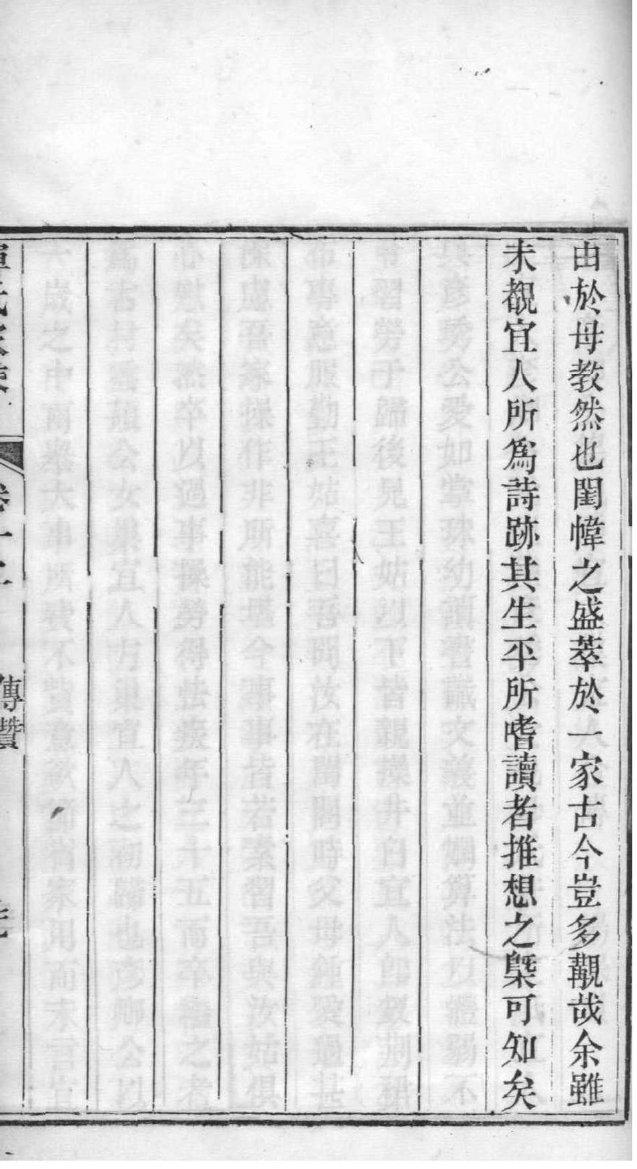 由於母教然也閨幃之盛萃於一家古今豈多覯哉余雖
未覩宜人所爲詩跡其生平所嗜讀者推想之槩可知矣
傳贊